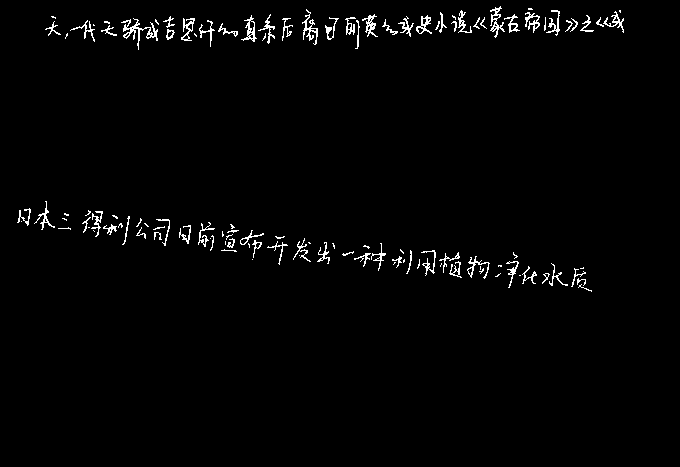 天,一代天骄成吉思汗的直系后裔日前莫的成史小说《蒙古帝国》之《成
日本三得利公司日前宣布开发出一种利用植物净化水质